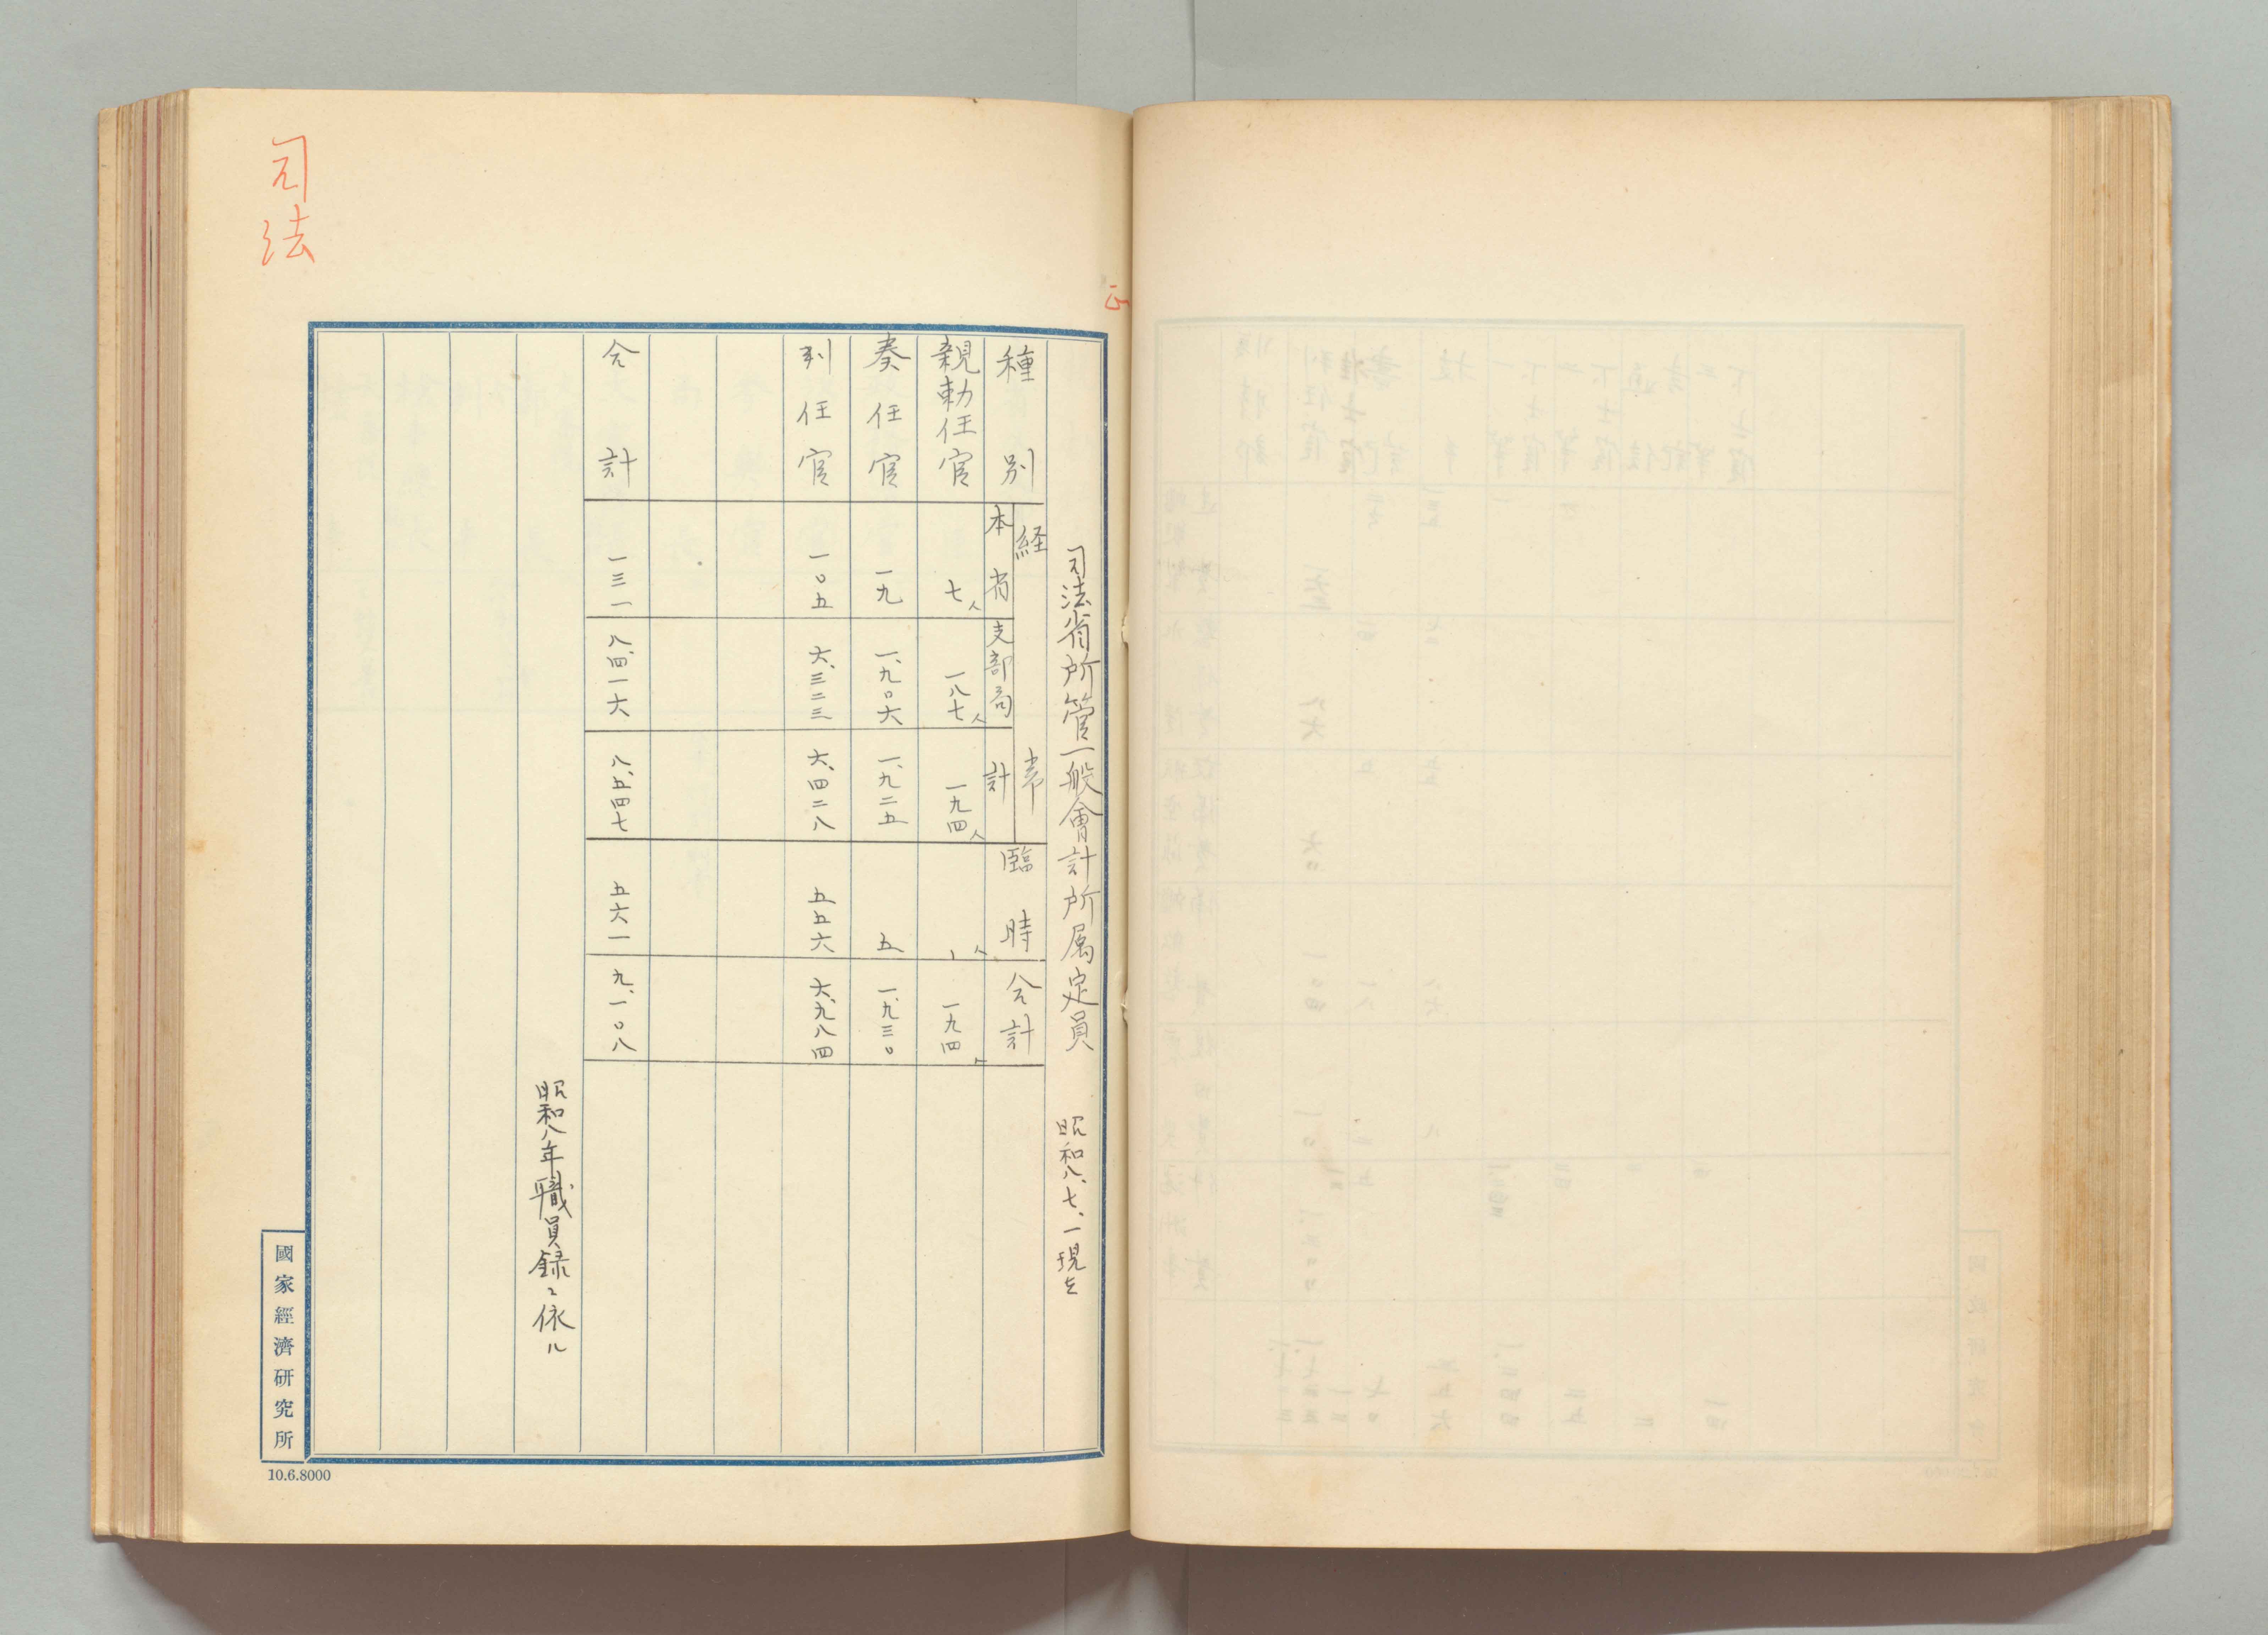 司法
司法省所管一般會計所属定員　昭和八、七、一現在
種別　経常　本省　支部局　計　臨時　合計
親勅任官　七人　一八七人　一九四人　、人　一九四人
奏任官　一九　一、九〇六　一、九二五　五　一、九三〇
判任官　一〇五　六、三二三　六、四二八　五五六　六、九八四
合計　一三一　八、四一六　八、五四七　五六一　九、一〇八
昭和八年職員録ニ依ル
國家經濟研究所
10.6.8000